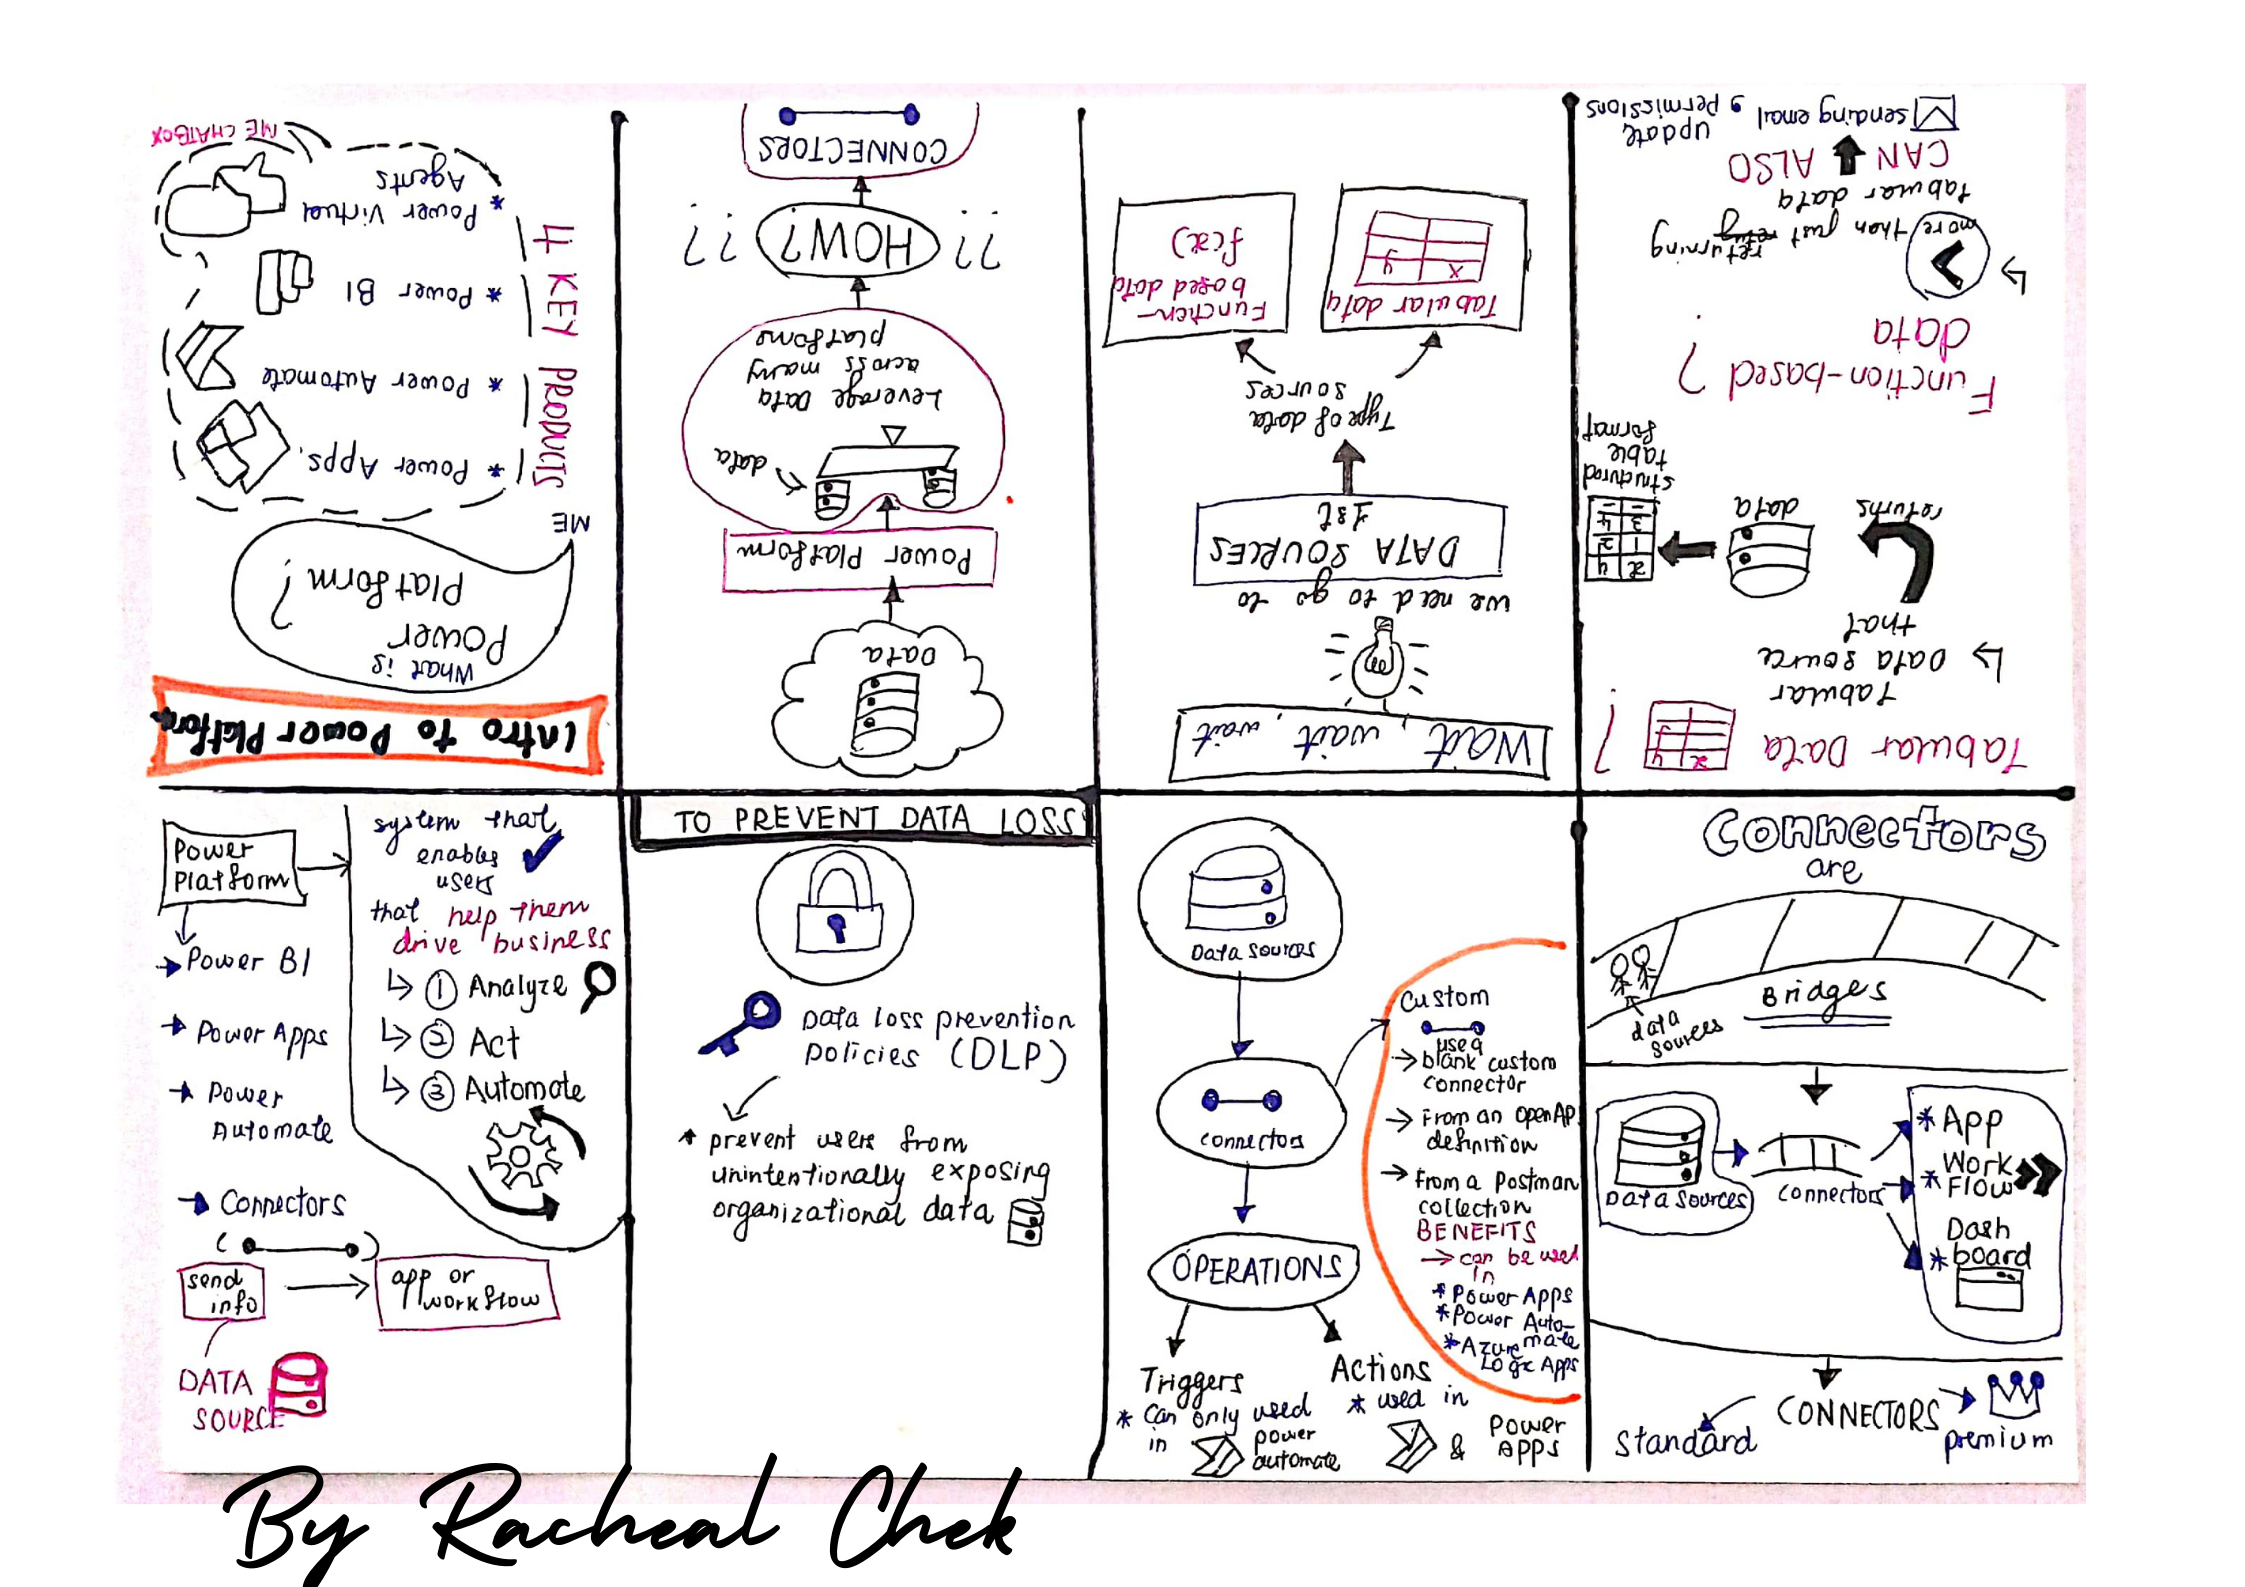 Intro to Power Platform
What is
Power
Platform ?
ME
4 KEY PRODUCTS
* Power Apps.
* Power Automate
* Power BI
* Power Virtual
Agents
ME CHATBOX
DATA
Power Platform
data
Leverage DATA
across many
platforms
?? HOW? ??
CONNECTORS
Wait, wait, wait
we need to go to
DATA SOURCES
1st
Type of data
sources
Tabular data
x y
Function-
based data
f(x)
Tabular DATA
x y
?
Tabular
↳ DATA source
that
returns
data
x y
1 2
3 4
structured
table
format
Function-based ?
data
↳ more than just returning
tabular data
CAN ALSO
sending email, update
permissions
Power
Platform
→ Power BI
→ Power Apps
→ Power
Automate
→ Connectors
send
info
app or
workflow
DATA
SOURCE
system that
enables
users
that help them
drive business
↳ ① Analyze
↳ ② Act
↳ ③ Automate
TO PREVENT DATA LOSS
Data loss prevention
policies (DLP)
prevent users from
unintentionally exposing
organizational data
Data sources
connectors
OPERATIONS
Triggers
* Can only used
in power
automate
Actions
* used in
& POWER
APPS
Custom
use a
→ blank custom
connector
→ From an openAP
definition
→ From a Postman
collection
BENEFITS
→ can be used
in
* Power Apps
* Power Auto-
mate
* Azure
Logic Apps
Connectors
are
Bridges
data
sources
DATA SOURCES
connectors
* App
* Work
Flow
Dash
* board
CONNECTORS
Standard
premium
By Racheal Chek